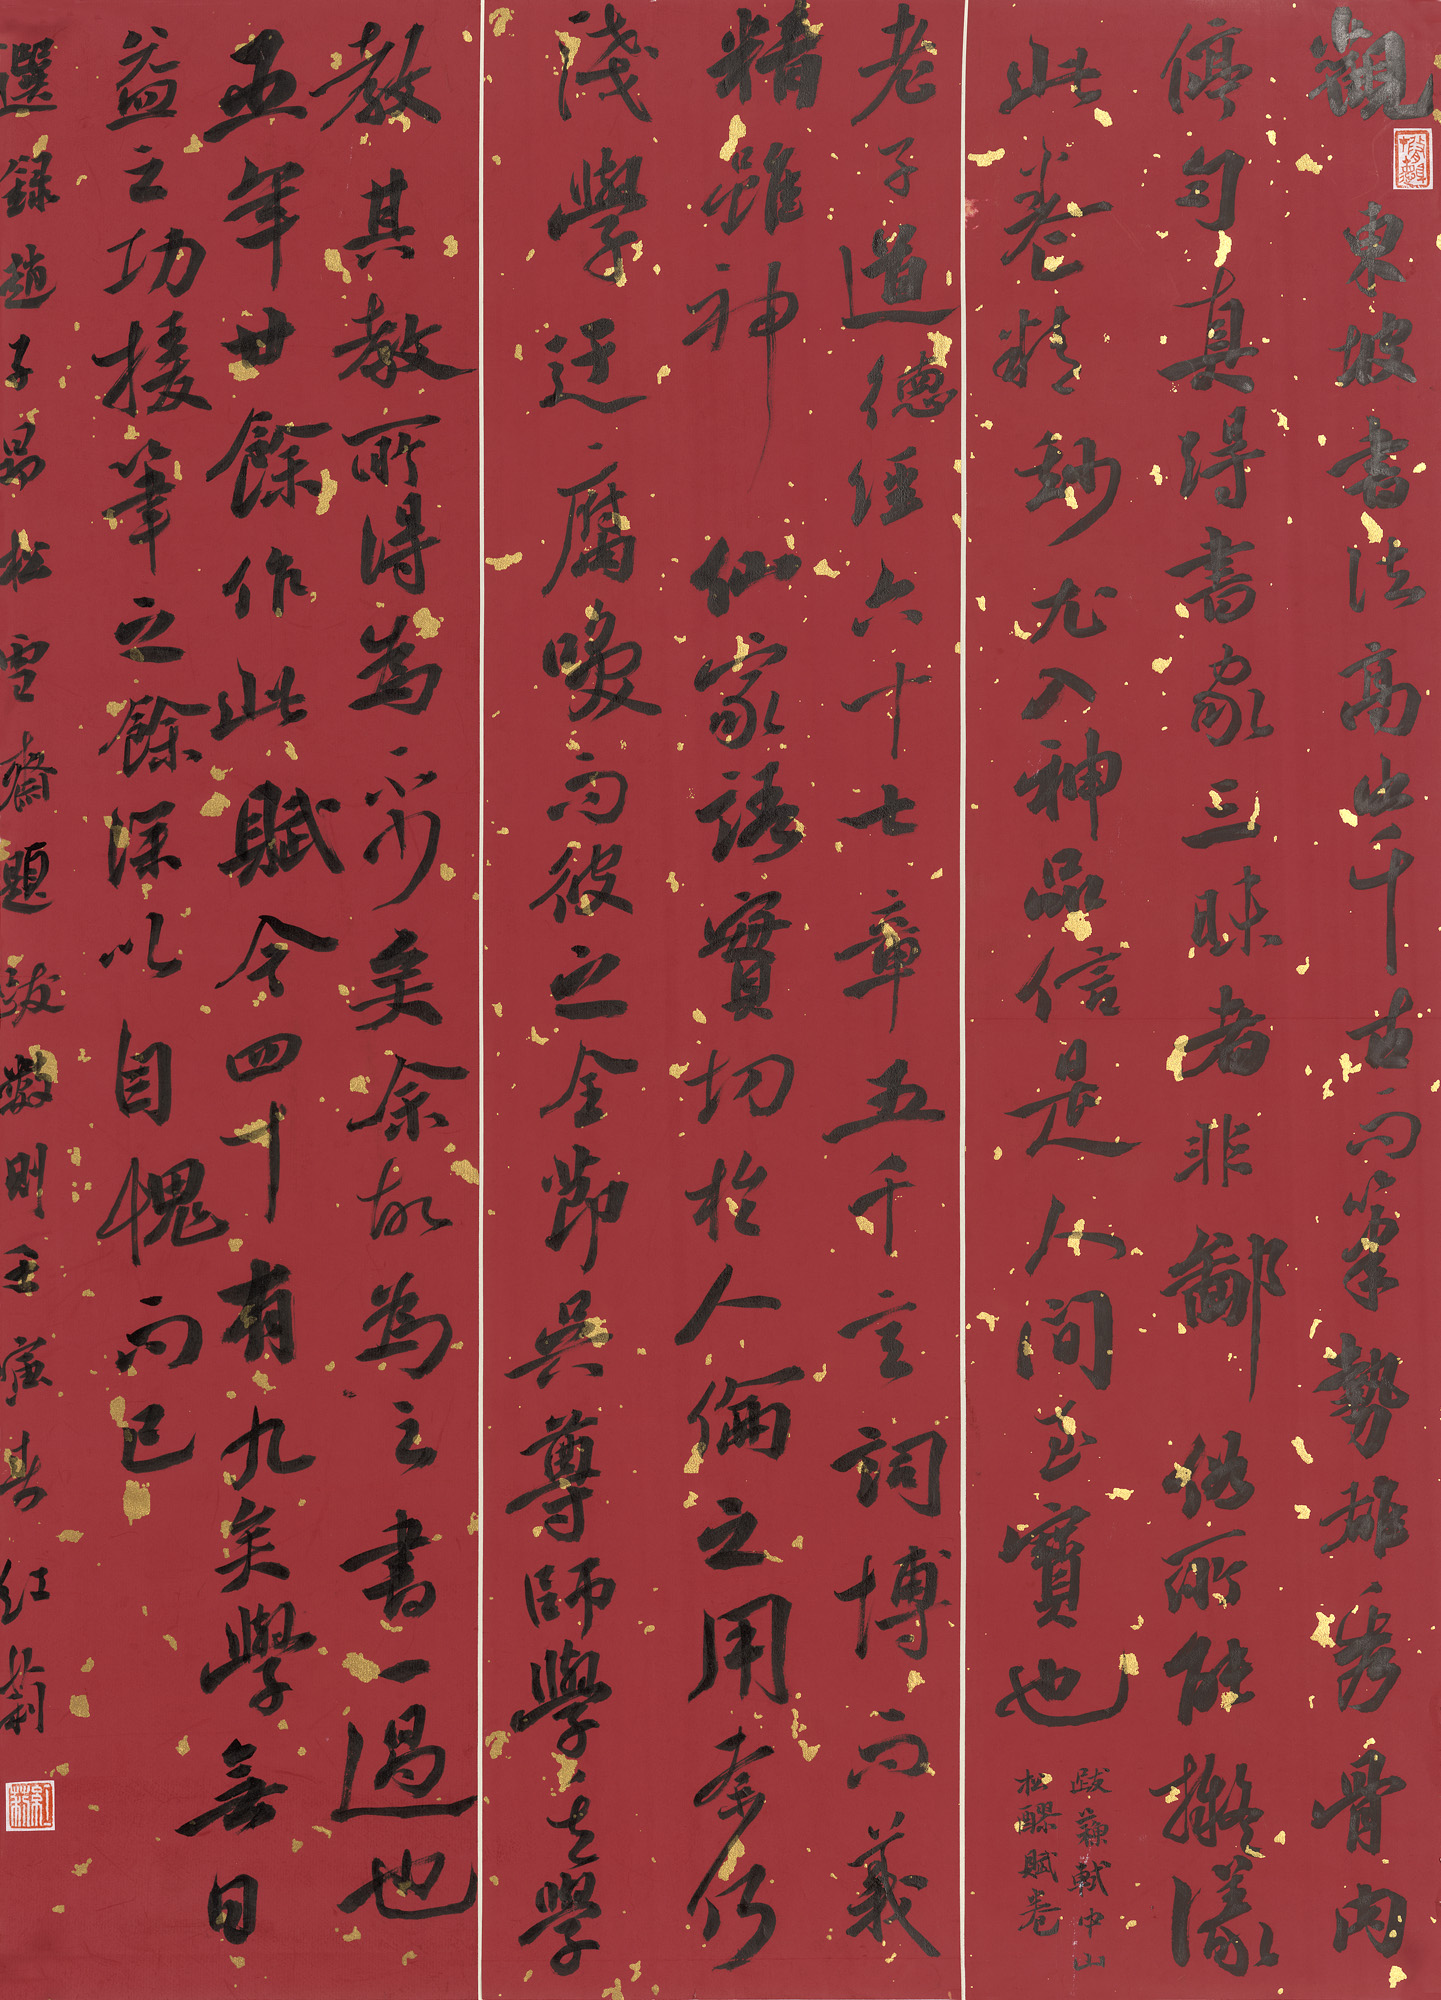 觀東坡書法高出千古而筆勢雄秀骨肉
停勻真得書家三昧者非鄙俗所能擬議
此卷精妙尤入神品信是人間至寶也
跋蘇軾中山
松醪賦卷
老子道德經六十七章五千言詞博而義
精雖神仙家語實切於人倫之用奈何
淺學迂腐喚而彼之全節吳尊師學之學
教其教所得為不少矣余故為之書一過也
五年廿餘作此賦今四十有九矣學無日
益之功接筆之餘深以自愧而已
選錄趙子昂松雪齋題跋數則壬寅春紅菊